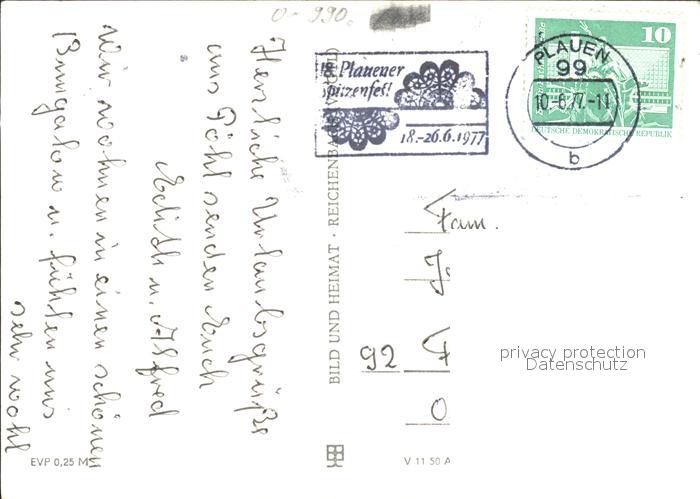 0-990.
Plauener
Spitzenfest
18.-26.6.1977
PLAUEN
99
10.-6.77.-11
b
10
DEUTSCHE DEMOKRATISCHE REPUBLIK
Herzliche Urlaubsgrüße
aus Pöhl senden Euch
Edith u. Alfred
Wir wohnen in einen schönen
Bungalow u. fühlen uns
sehr wohl
BILD UND HEIMAT · REICHENBACH
Fam.
J.
92 F
O
privacy protection
Datenschutz
EVP 0,25 M
V 11 50 A